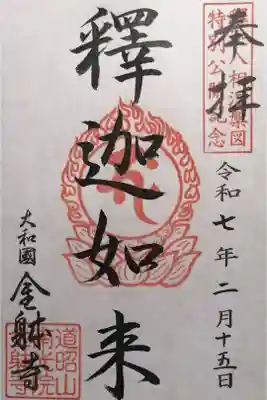 奉拝
人相涅槃図
特別公開記念
釋迦如来
令和七年二月十五日
大和國
金躰寺
道昭山